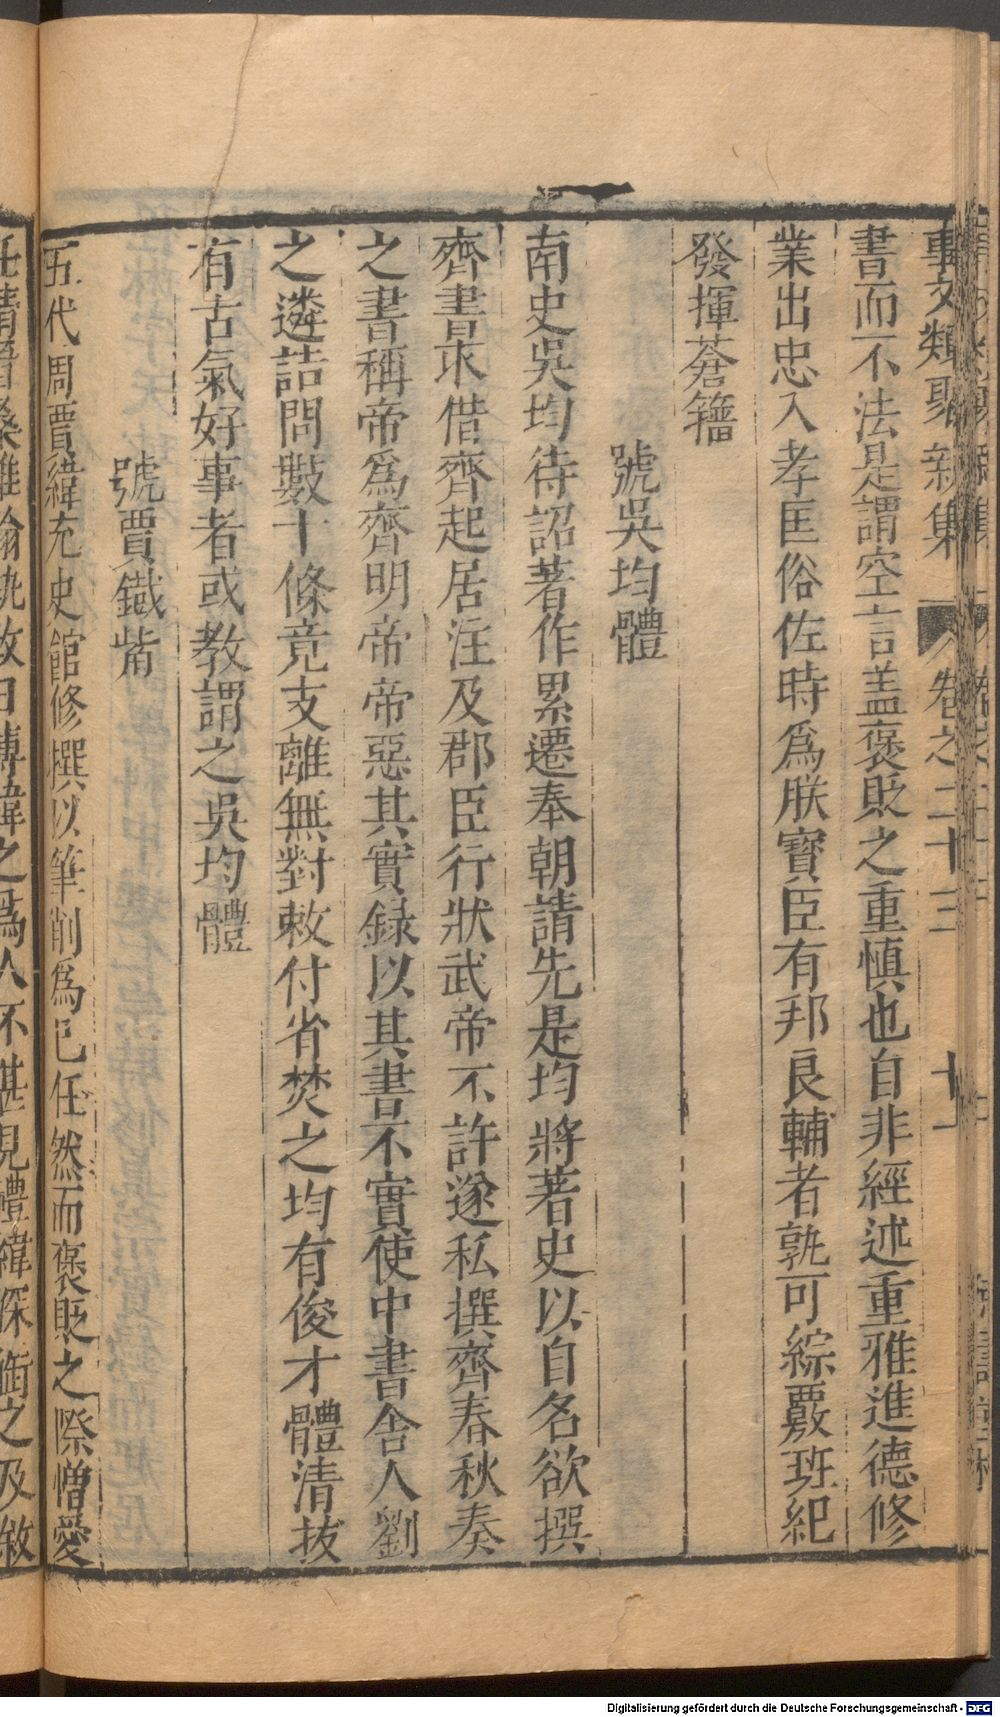 事文類聚新集 卷之二十三 十一
書而不法是謂空言盖褒貶之重慎也自非經述重雅進德修
業出忠入孝匡俗佐時爲朕寳臣有邦良輔者孰可綜覈班紀
發揮蒼籒
號吳均體
南史吳均待詔著作累遷奉朝請先是均將著史以自名欲撰
齊書求借齊起居注及郡臣行狀武帝不許遂私撰齊春秋奏
之書稱帝爲齊明帝帝惡其實録以其書不實使中書舍人劉
之遴詰問數十條竟支離無對敕付省焚之均有俊才體清抜
有古氣好事者或教謂之吳均體
號賈鐵觜
五代周賈緯充史館修撰以筆削爲己任然而褒貶之際憎愛
任情晉桑維翰執政日薄緯之爲人不甚見禮緯深銜之及敘
Digitalisierung gefördert durch die Deutsche Forschungsgemeinschaft - DFG